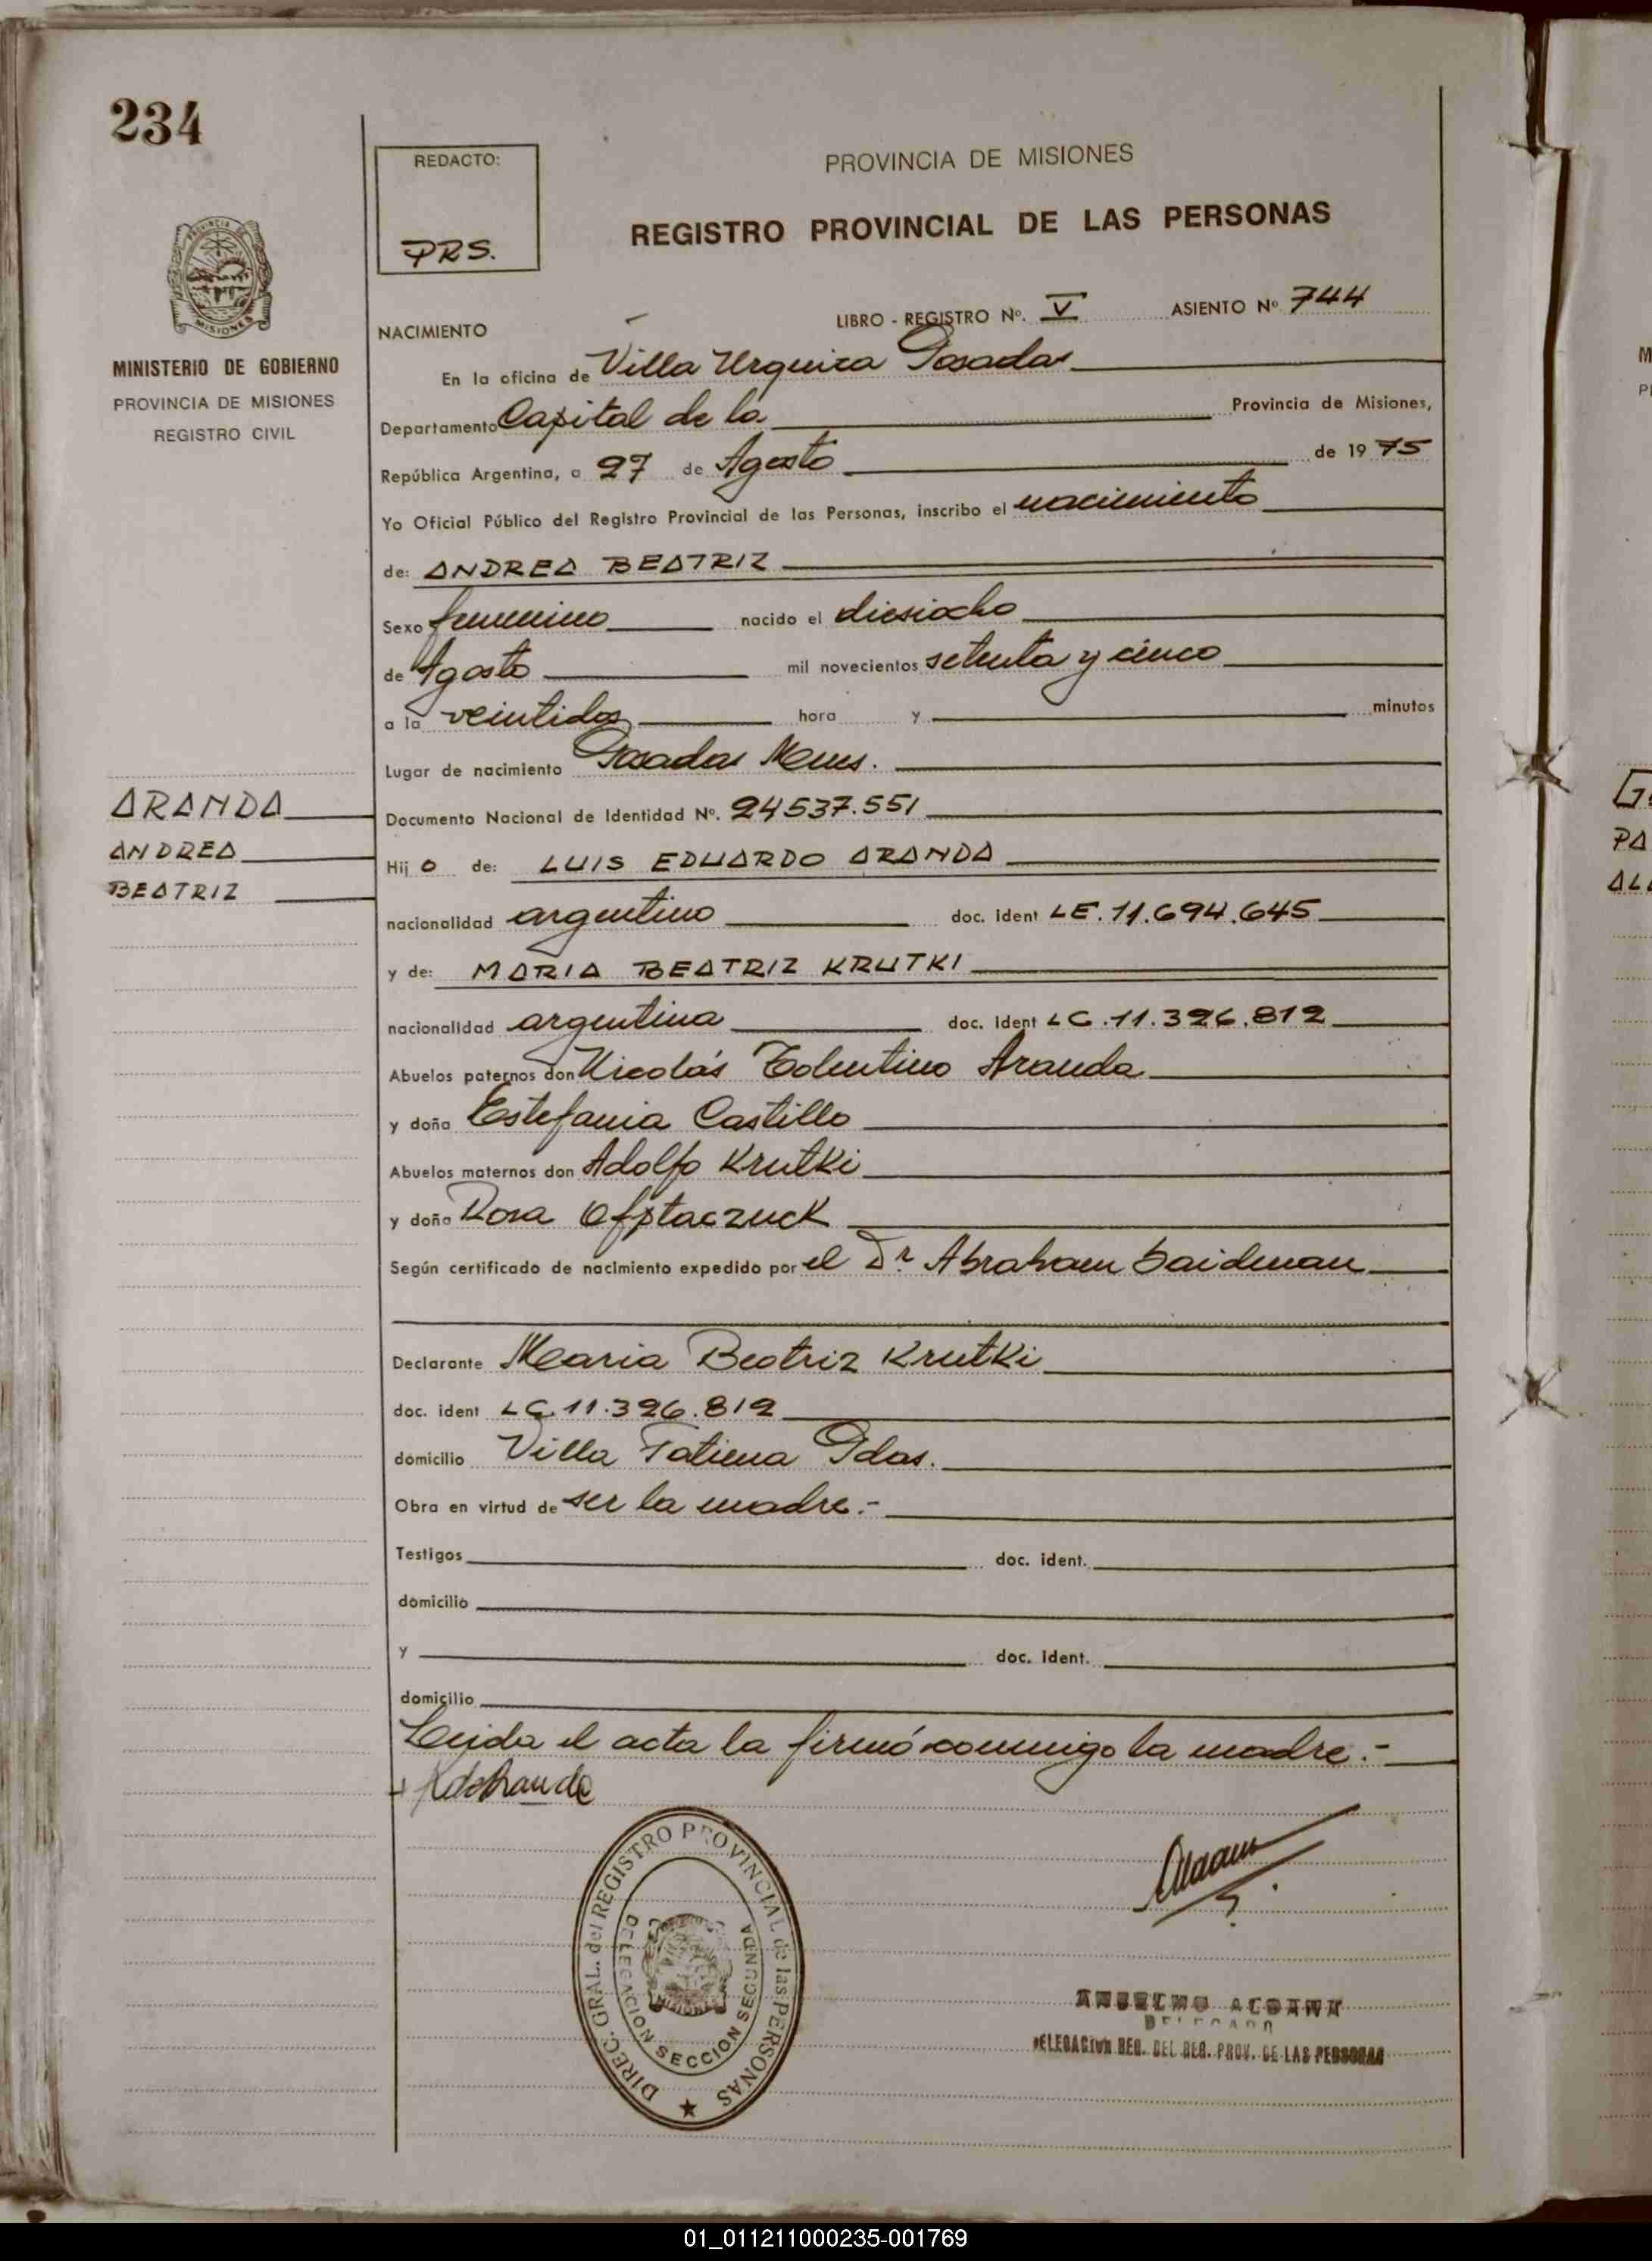 234
REDACTO:
PRS.
PROVINCIA DE MISIONES
REGISTRO PROVINCIAL DE LAS PERSONAS
MISIONES
MINISTERIO DE GOBIERNO
PROVINCIA DE MISIONES
REGISTRO CIVIL
LIBRO - REGISTRO Nº. V ASIENTO Nº 744
NACIMIENTO
En la oficina de Villa Urquiza Posadas
Departamento Capital de la Provincia de Misiones,
República Argentina, a 27 de Agosto de 1975
Yo Oficial Público del Registro Provincial de las Personas, inscribo el nacimiento
de: ANDREA BEATRIZ
Sexo femenino nacido el diesiocho
de Agosto mil novecientos setenta y cinco
a la veintidos hora y minutos
Lugar de nacimiento Posadas Mnes.
ARANDA
ANDREA
BEATRIZ
Documento Nacional de Identidad Nº. 24537.551
Hijo de: LUIS EDUARDO ARANDA
nacionalidad argentino doc. ident LE.11.694.645
y de: MARIA BEATRIZ KRUTKI
nacionalidad argentina doc. ident LC.11.396.812
Abuelos paternos don Nicolás Tolentino Aranda
y doña Estefania Castillo
Abuelos maternos don Adolfo Krutki
y doña Rosa Ofptaczuck
Según certificado de nacimiento expedido por el Dr. Abraham Saidman
Declarante Maria Beatriz Krutki
doc. ident LC.11.396.812
domicilio Villa Fatima Pdas.
Obra en virtud de ser la madre.-
Testigos doc. ident.
domicilio
y doc. ident.
domicilio
Leida el acta la firmó conmigo la madre.-
DIREC. GRAL. del REGISTRO PROVINCIAL de las PERSONAS
DELEGACION SECCION SEGUNDA
MISIONES
DELEGADO
DELEGACION REG. DEL REG. PROV. DE LAS PERSONAS
01_011211000235-001769